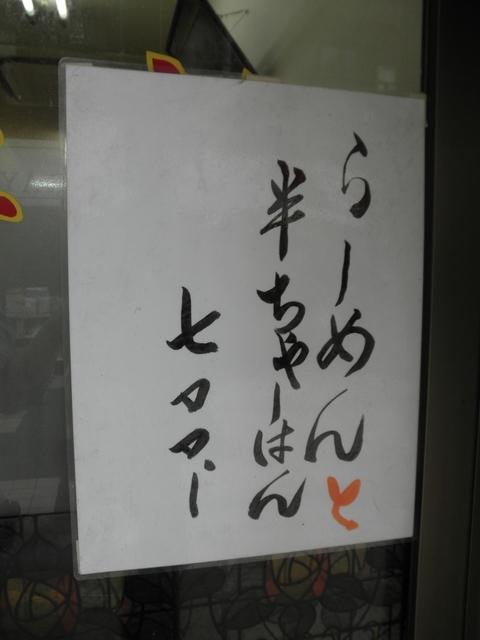 らーめんと
半ちゃーはん
七〇〇ー